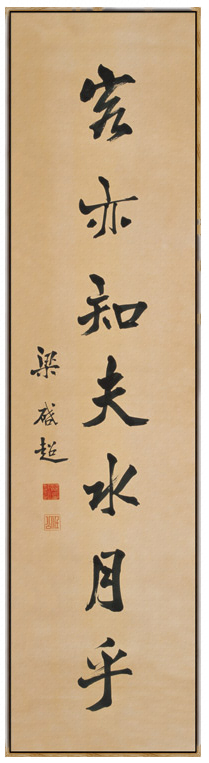 客亦知夫水月乎
梁啟超